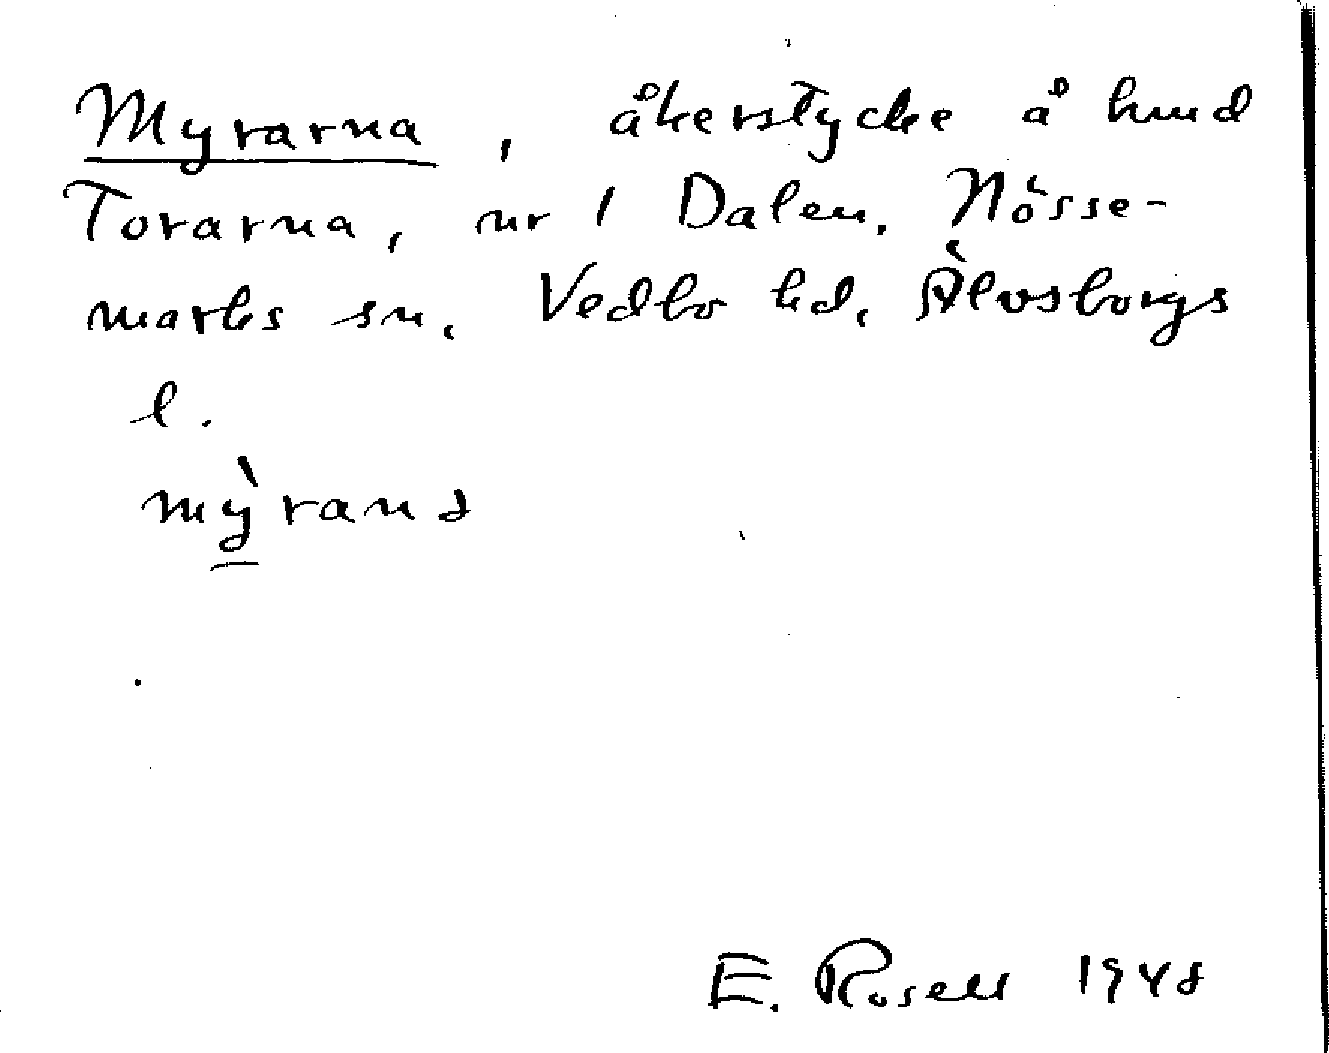 Myrarna, åkerstycke å hmd
Torarna, nr 1 Dalen. Nösse-
marks sn. Vedbo hd. Älvsborgs
l.
mỳrans
E. Rosell 1948